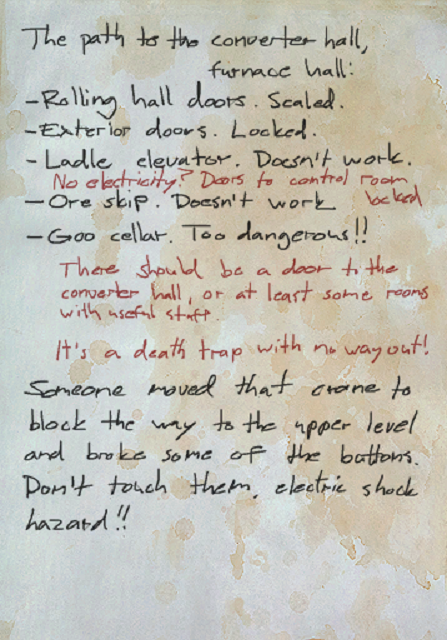 The path to the converter hall,
furnace hall:
-Rolling hall doors. Sealed.
-Exterior doors. Locked.
-Ladle elevator. Doesn't work.
No electricity? Doors to control room
locked
-Ore skip. Doesn't work
-Goo cellar. Too dangerous!!
There should be a door to the
converter hall, or at least some rooms
with useful stuff.
It's a death trap with no way out!
Someone moved that crane to
block the way to the upper level
and broke some of the buttons.
Don't touch them, electric shock
hazard!!